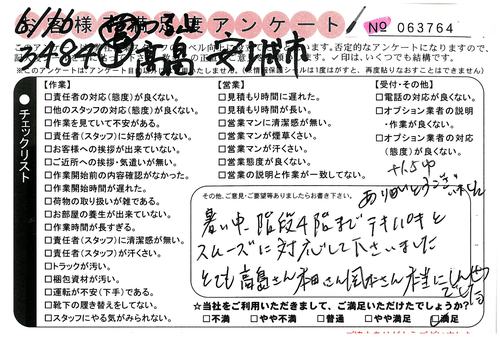 お客様満足度アンケート
№ 063764
6/16
3484
高畠 安城市
※このアンケートはアンケート
チェックリスト
【作業】
□責任者の対応(態度)が良くない。
□他のスタッフの対応(態度)が良くない。
□作業を見ていて不安がある。
□責任者(スタッフ)に好感が持てない。
□お客様への挨拶が出来ていない。
□ご近所への挨拶・気遣いが無い。
□作業開始前の内容確認がなかった。
□作業開始時間が遅れた。
□荷物の取り扱いが雑である。
□お部屋の養生が出来ていない。
□作業時間が長すぎる。
□責任者(スタッフ)に清潔感が無い。
□責任者(スタッフ)が汗くさい。
□トラックが汚い。
□梱包資材が汚い。
□運転が不安(下手)である。
□靴下の履き替えをしてない。
□スタッフにやる気がみられない。
【営業】
□見積もり時間に遅れた。
□見積もり時間が長い。
□営業マンに清潔感が無い。
□営業マンが煙草くさい。
□営業マンが汗くさい。
□営業態度が良くない。
□営業の説明と作業が一致してない。
【受付・その他】
□電話の対応が良くない。
□オプション業者の説明
・作業が良くない。
□オプション業者の対応
(態度)が良くない。
その他、ご意見・ご要望等ありましたらお書き下さい。
ありがとうございました
暑い中、階段4階までテキパキと
スムーズに対応して下さいました
とても高畠さん本田さん 本当にしんせつ
でした
☆当社をご利用いただきまして、ご満足いただけたでしょうか?
□不満 □やや不満 □普通 □やや満足 □満足